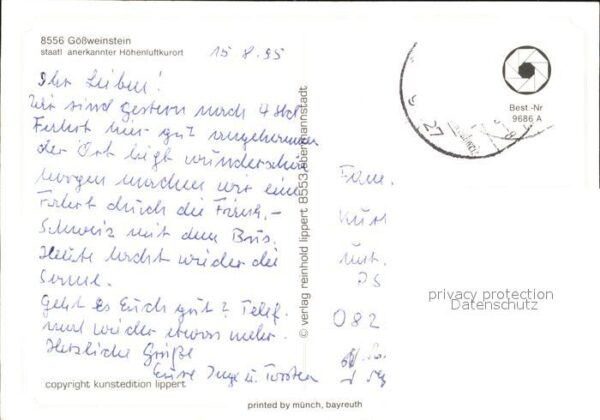 8556 Gößweinstein
staatl anerkannter Höhenluftkurort
15.8.95
Ihr Lieben!
Wir sind Gestern nach 4 Std
Fahrt hier gut angekommen
der Ort liegt wunderschön
morgen machen wir eine
Fahrt durch die Fränk.-
Schweiz mit dem Bus.
Heute lacht wieder die
Sonne.
Geht es Euch gut? Telef.
wieder etwas mehr.
Herzliche Grüße
Eure Inge u. Torsten
copyright kunstedition lippert
© verlag reinhold lippert 8553 ebermannstadt
Best.-Nr
9686 A
27
Fam.
Kurt
082
privacy protection
Datenschutz
printed by münch, bayreuth